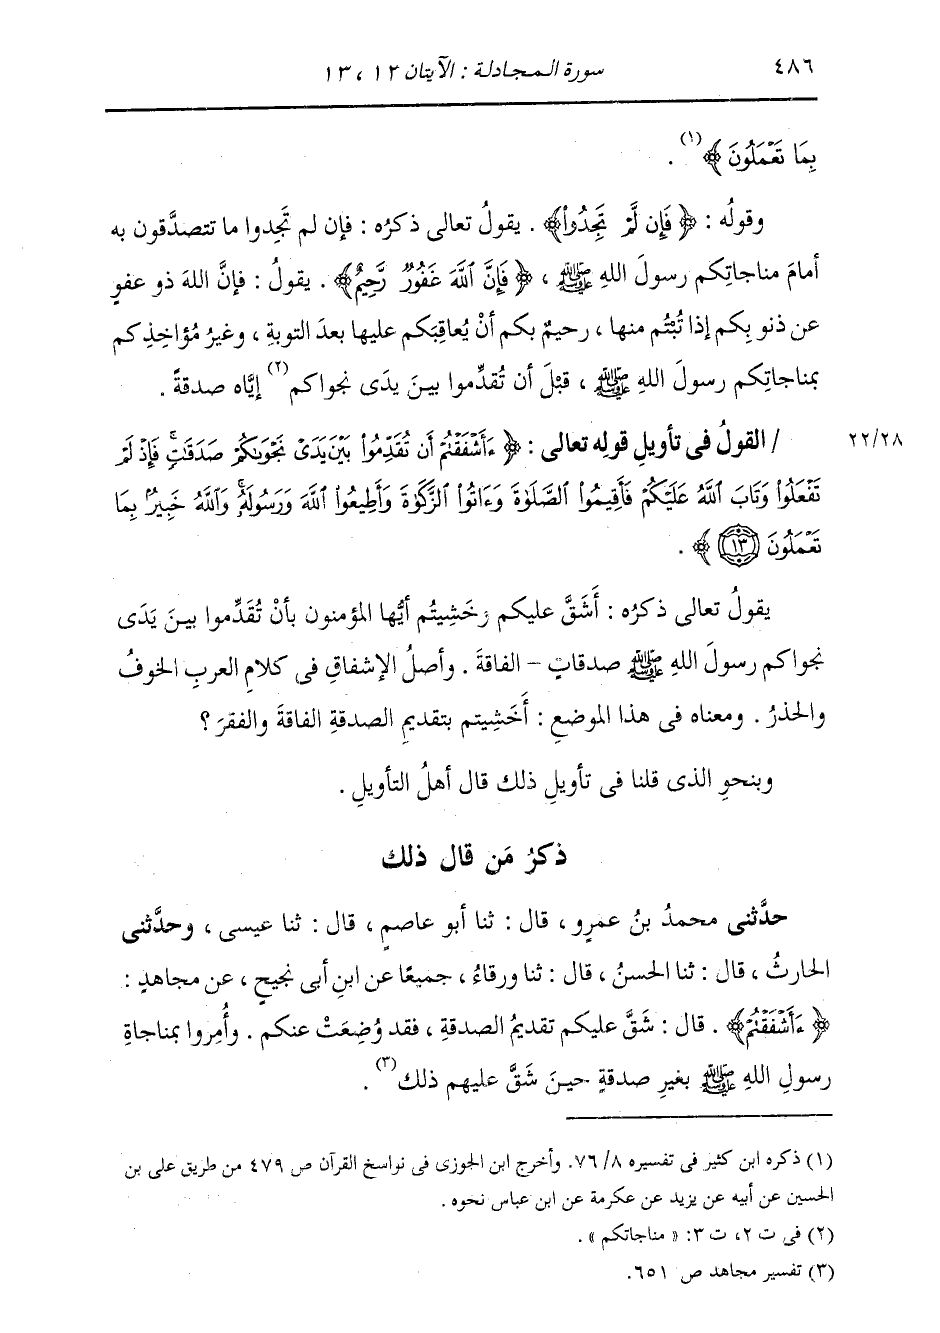 ٤٨٦ سورة المجادلة : الآيتان ١٢ ، ١٣
بِمَا تَعْمَلُونَ ﴾(١) .
وقولُه : ﴿ فَإِن لَّمْ تَجِدُواْ﴾ . يقولُ تعالى ذكرُه : فإن لم تَجِدوا ما تتصدَّقون به
أمامَ مناجاتِكم رسولَ اللهِ ﷺ ، ﴿ فَإِنَّ ٱللَّهَ غَفُورٌ رَّحِيمٌ﴾ . يقولُ : فإنَّ اللهَ ذو عفوٍ
عن ذنوبِكم إذا تُبْتُم منها ، رحيمٌ بكم أنْ يُعاقِبَكم عليها بعدَ التوبةِ ، وغيرُ مُؤاخِذِكم
بمناجاتِكم رسولَ اللهِ ﷺ ، قبْلَ أن تُقدِّموا بينَ يدَى نجواكم(٢) إيَّاه صدقةً .
٢٢/٢٨ / القولُ فى تأويلِ قولِه تعالى : ﴿ ءَأَشْفَقْتُمْ أَن تُقَدِّمُواْ بَيْنَ يَدَىْ نَجْوَىٰكُمْ صَدَقَـٰتٍۚ فَإِذْ لَمْ
تَفْعَلُواْ وَتَابَ ٱللَّهُ عَلَيْكُمْ فَأَقِيمُواْ ٱلصَّلَوٰةَ وَءَاتُواْ ٱلزَّكَوٰةَ وَأَطِيعُواْ ٱللَّهَ وَرَسُولَهُۥۚ وَٱللَّهُ خَبِيرٌۢ بِمَا
تَعْمَلُونَ ١٣ ﴾ .
يقولُ تعالى ذكرُه : أَشَقَّ عليكم وخَشِيتُم أيُّها المؤمنون بأنْ تُقَدِّموا بينَ يَدَى
نجواكم رسولَ اللهِ ﷺ صدقاتٍ – الفاقةَ . وأصلُ الإشفاقِ فى كلامِ العربِ الخوفُ
والحذرُ . ومعناه فى هذا الموضعِ : أَخَشِيتم بتقديمِ الصدقةِ الفاقةَ والفقرَ ؟
وبنحوِ الذى قلنا فى تأويلِ ذلك قال أهلُ التأويلِ .
ذكرُ مَن قال ذلك
حدَّثنى محمدُ بنُ عمرٍو ، قال : ثنا أبو عاصمٍ ، قال : ثنا عيسى ، وحدَّثنى
الحارثُ ، قال : ثنا الحسنُ ، قال : ثنا ورقاءُ ، جميعًا عن ابنِ أبى نجيحٍ ، عن مجاهدٍ :
﴿ ءَأَشْفَقْتُمْ﴾ . قال : شَقَّ عليكم تقديمُ الصدقةِ ، فقد وُضِعَتْ عنكم . وأُمِروا بمناجاةِ
رسولِ اللهِ ﷺ بغيرِ صدقةٍ حينَ شَقَّ عليهم ذلك(٣) .
(١) ذكره ابن كثير فى تفسيره ٨/ ٧٦. وأخرج ابن الجوزى فى نواسخ القرآن ص ٤٧٩ من طريق على بن
الحسين عن أبيه عن يزيد عن عكرمة عن ابن عباس نحوه .
(٢) فى ت ٢، ت ٣: « مناجاتكم » .
(٣) تفسير مجاهد ص ٦٥١.